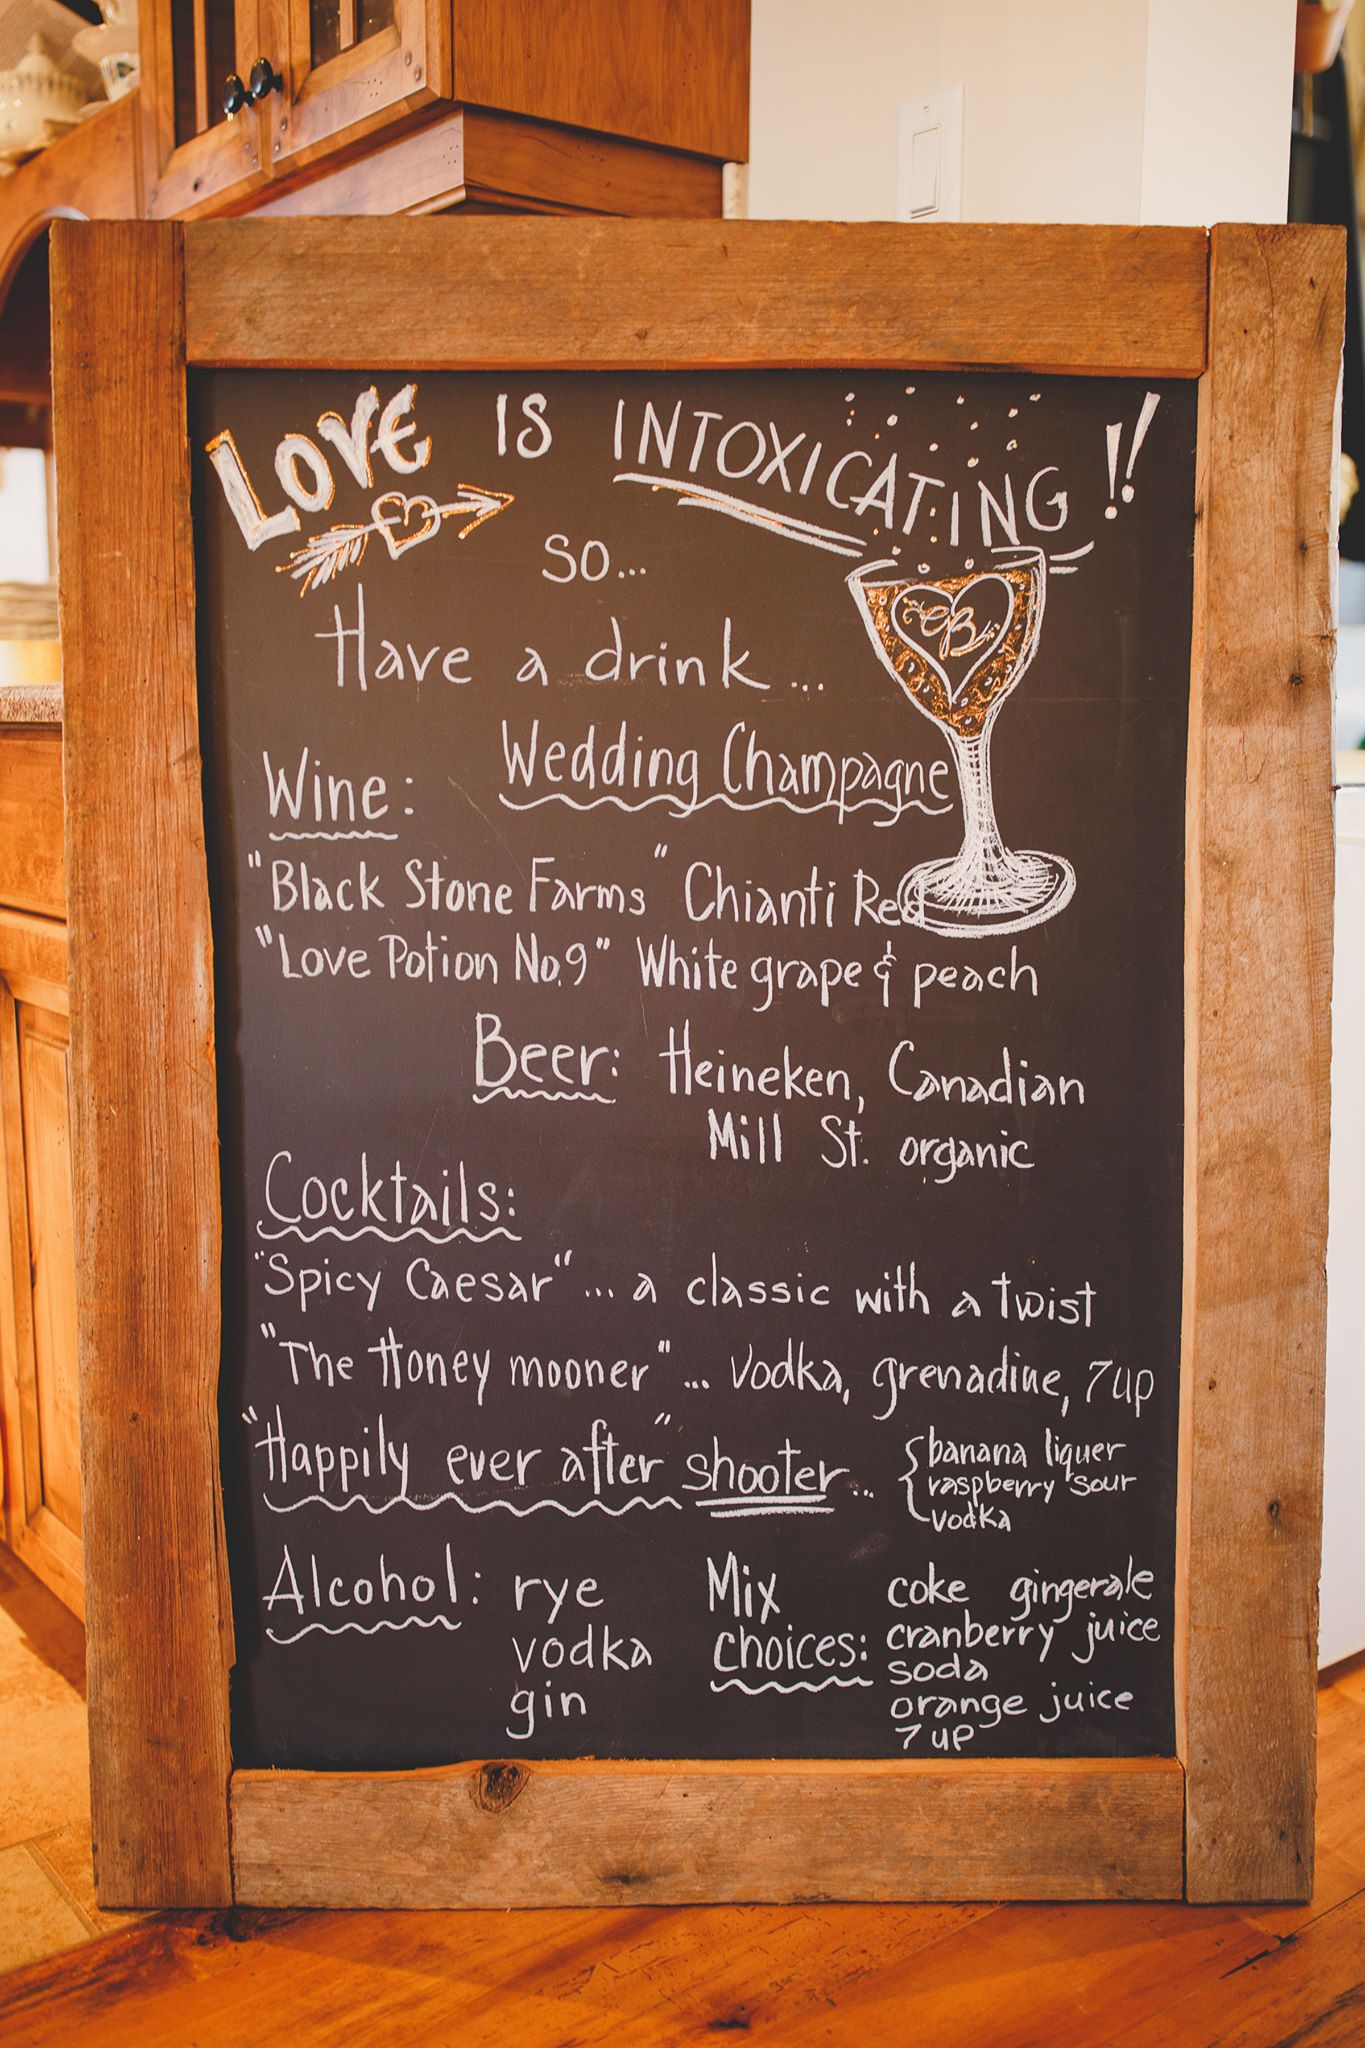 LOVE IS INTOXICATING!!
SO...
Have a drink...
Wine: Wedding Champagne
"Black Stone Farms" Chianti Red
"Love Potion No.9" White grape & peach
Beer: Heineken, Canadian
Mill St. organic
Cocktails:
"Spicy Caesar"... a classic with a twist
"The Honey mooner"... vodka, grenadine, 7up
"Happily ever after" shooter... banana liquer
raspberry sour
vodka
Alcohol: rye
vodka
gin
Mix
choices:
coke gingerale
cranberry juice
soda
orange juice
7up